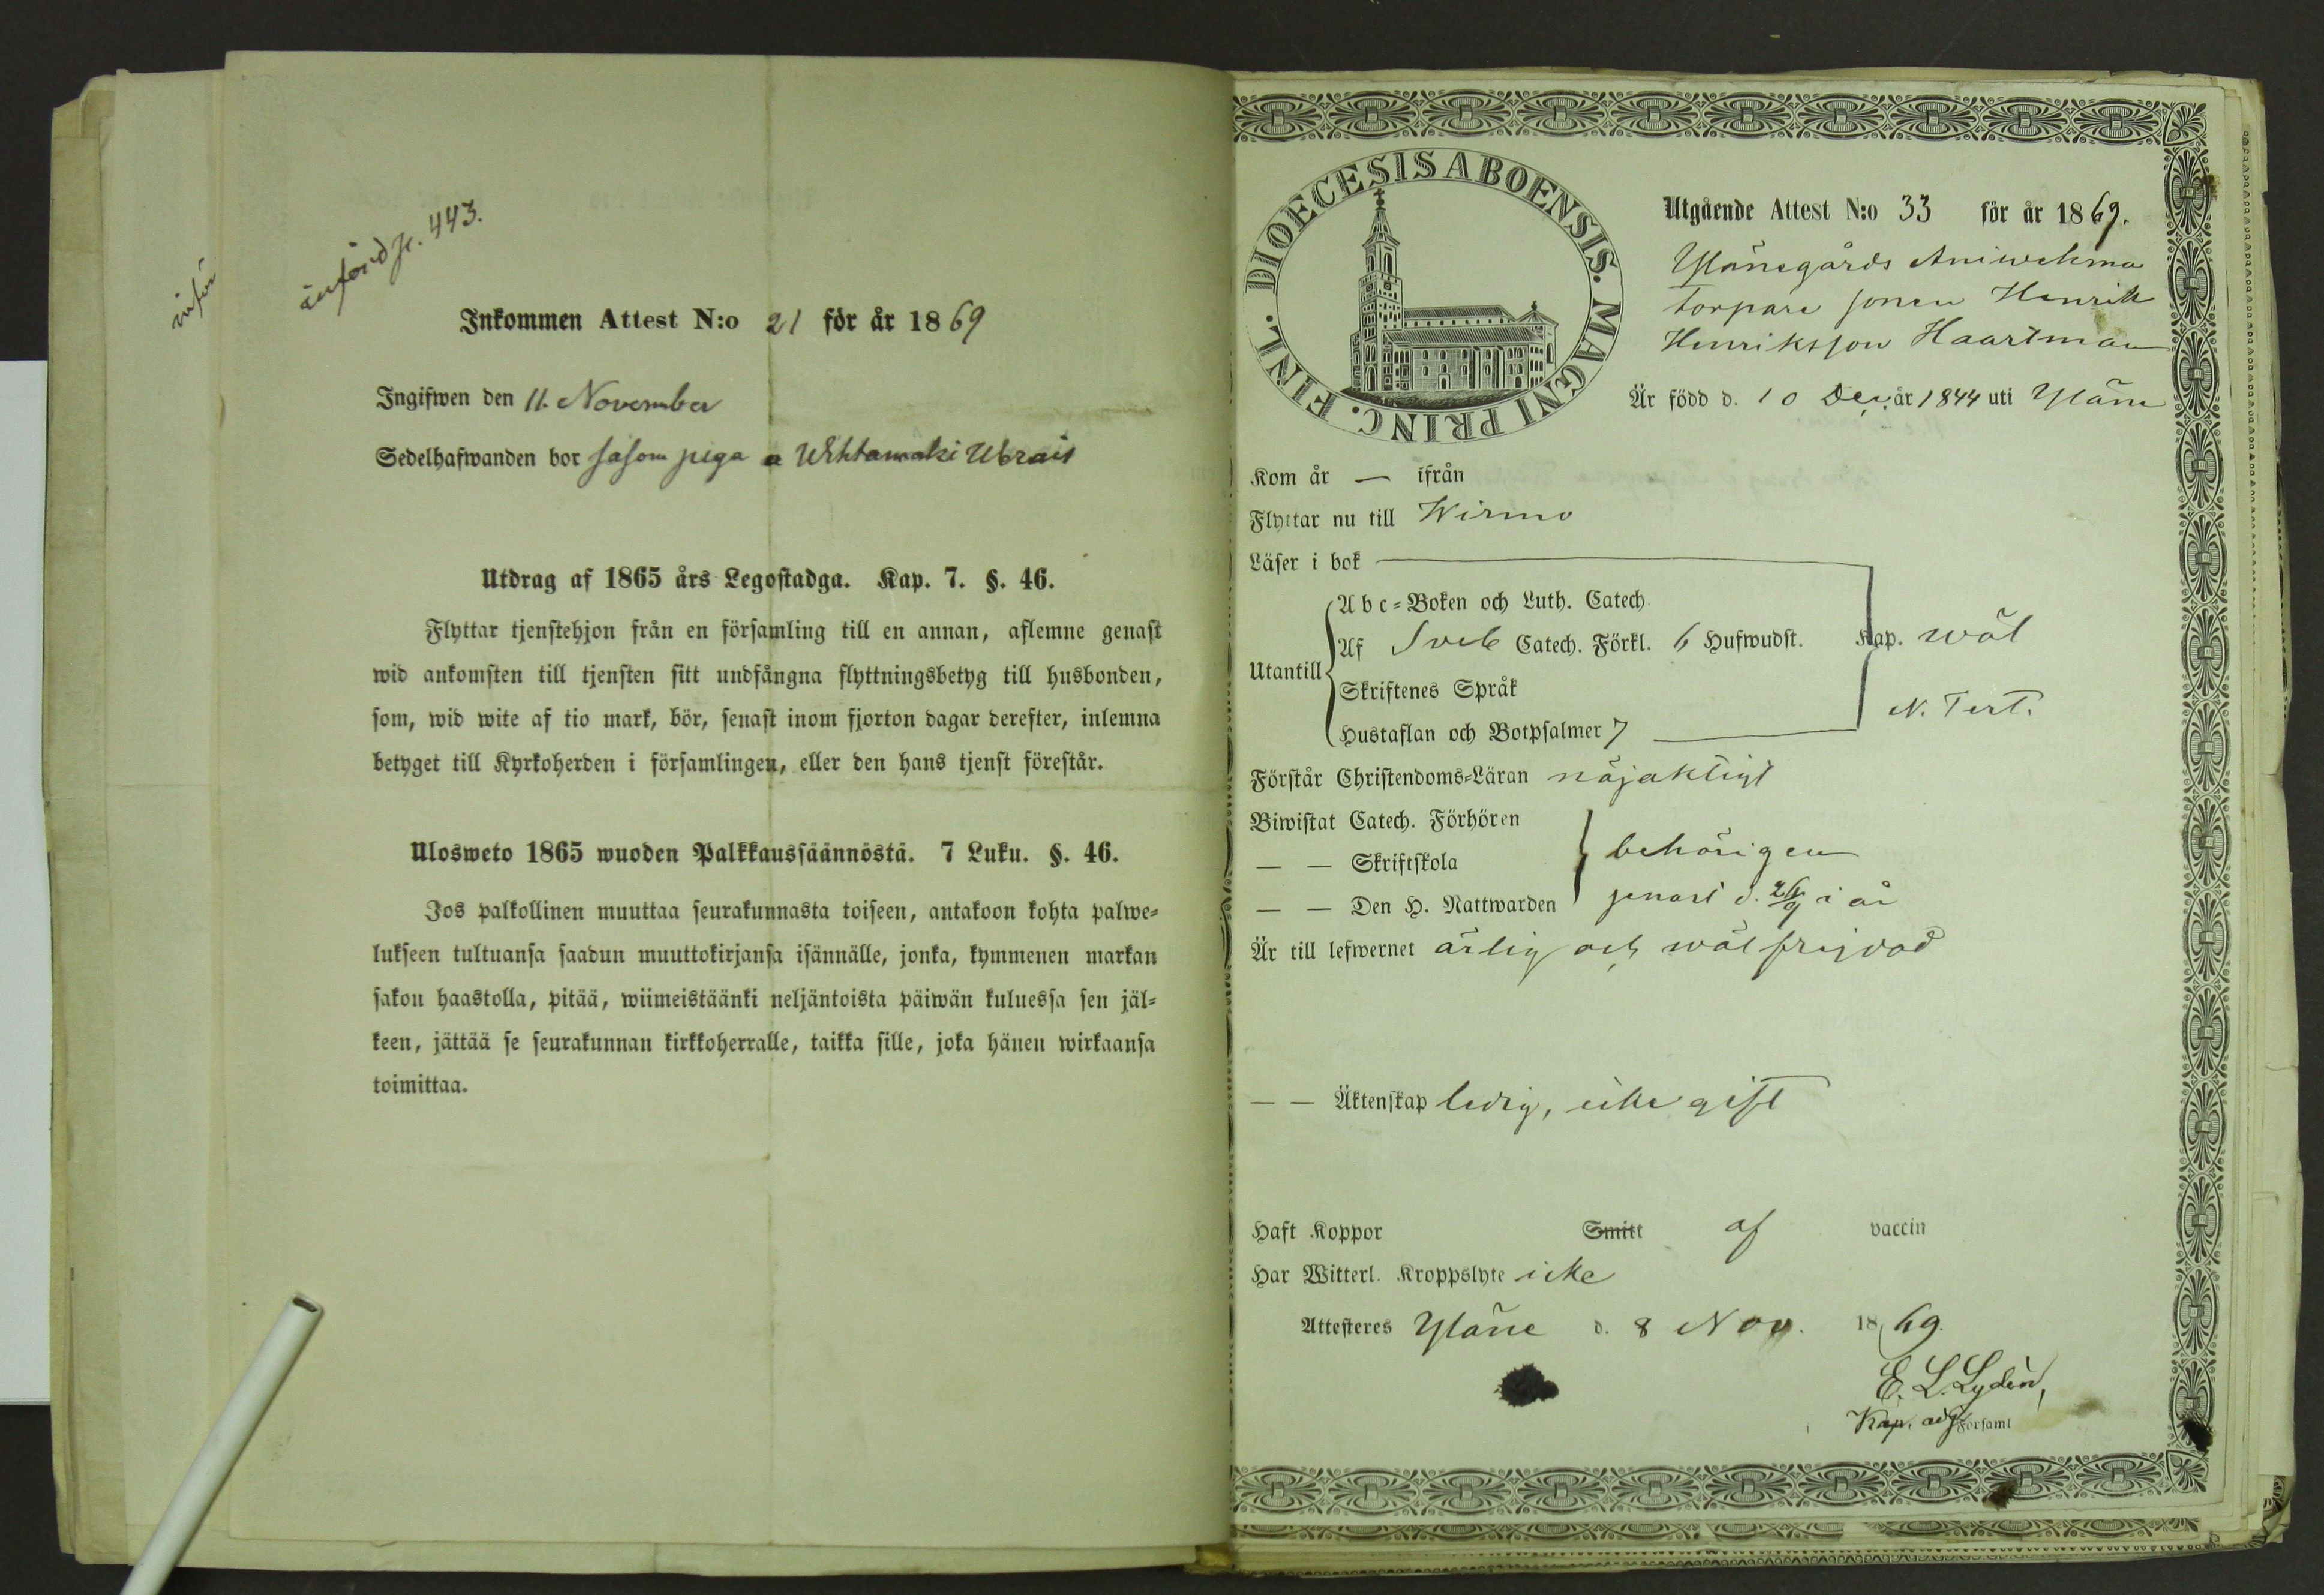 införd p. 443.
Inkommen Attest N:o 21 för år 1869
Ingifwen den 11. November
Sedelhafwanden bor såsom piga a
Utdrag af 1865 års Legostadga. Kap. 7. §. 46.
Flyttar tjenstehjon från en församling till en annan, aflemne genast
wid ankomsten till tjensten sitt undfångna flyttningsbetyg till husbonden,
som, wid wite af tio mark, bör, senast inom fjorton dagar derefter, inlemna
betyget till Kyrkoherden i församlingen, eller den hans tjenst förestår.
Ulosweto 1865 wuoden Palkkaussäännöstä. 7 Luku. §. 46.
Jos palkollinen muuttaa seurakunnasta toiseen, antakoon kohta palwe=
lukseen tultuansa saadun muuttokirjansa isännälle, jonka, kymmenen markan
sakon haastolla, pitää, wiimeistäänki neljäntoista päiwän kuluessa sen jäl=
keen, jättää se seurakunnan kirkkoherralle, taikka sille, joka hänen wirkaansa
toimittaa.
DIOECESIS ABOENSIS. MAGNI PRINC. FINL.
Utgående Attest N:o 33 för år 1869.
Ylänegårds Aniwehma
torpare sonen Henrik
Henriksson Haartman
Är född d. 10 Dec. år 1844 uti Yläne
Kom år — ifrån
Flyttar nu till Wirmo
Läser i bok
Abc=Boken och Luth. Catech.
Utantill Af Sveb Catech. Förkl. 6 Hufwudst. Kap. wäl
Skriftenes Språk
N. Test.
Hustaflan och Botpsalmer 7
Förstår Christendoms=Läran nöjaktigt
Biwistat Catech. Förhören
— — Skriftskola behörigen
— — Den H. Nattwarden senast d. 26/9 i år
Är till lefwernet ärlig och wäl frejdad
— — Äktenskap ledig, icke gift
Haft Koppor Smitt af vaccin
Har Witterl. Kroppslyte icke
Attesteres Yläne d. 8 Nov. 1869.
E. L. Lydén,
Kap. adj. Församl